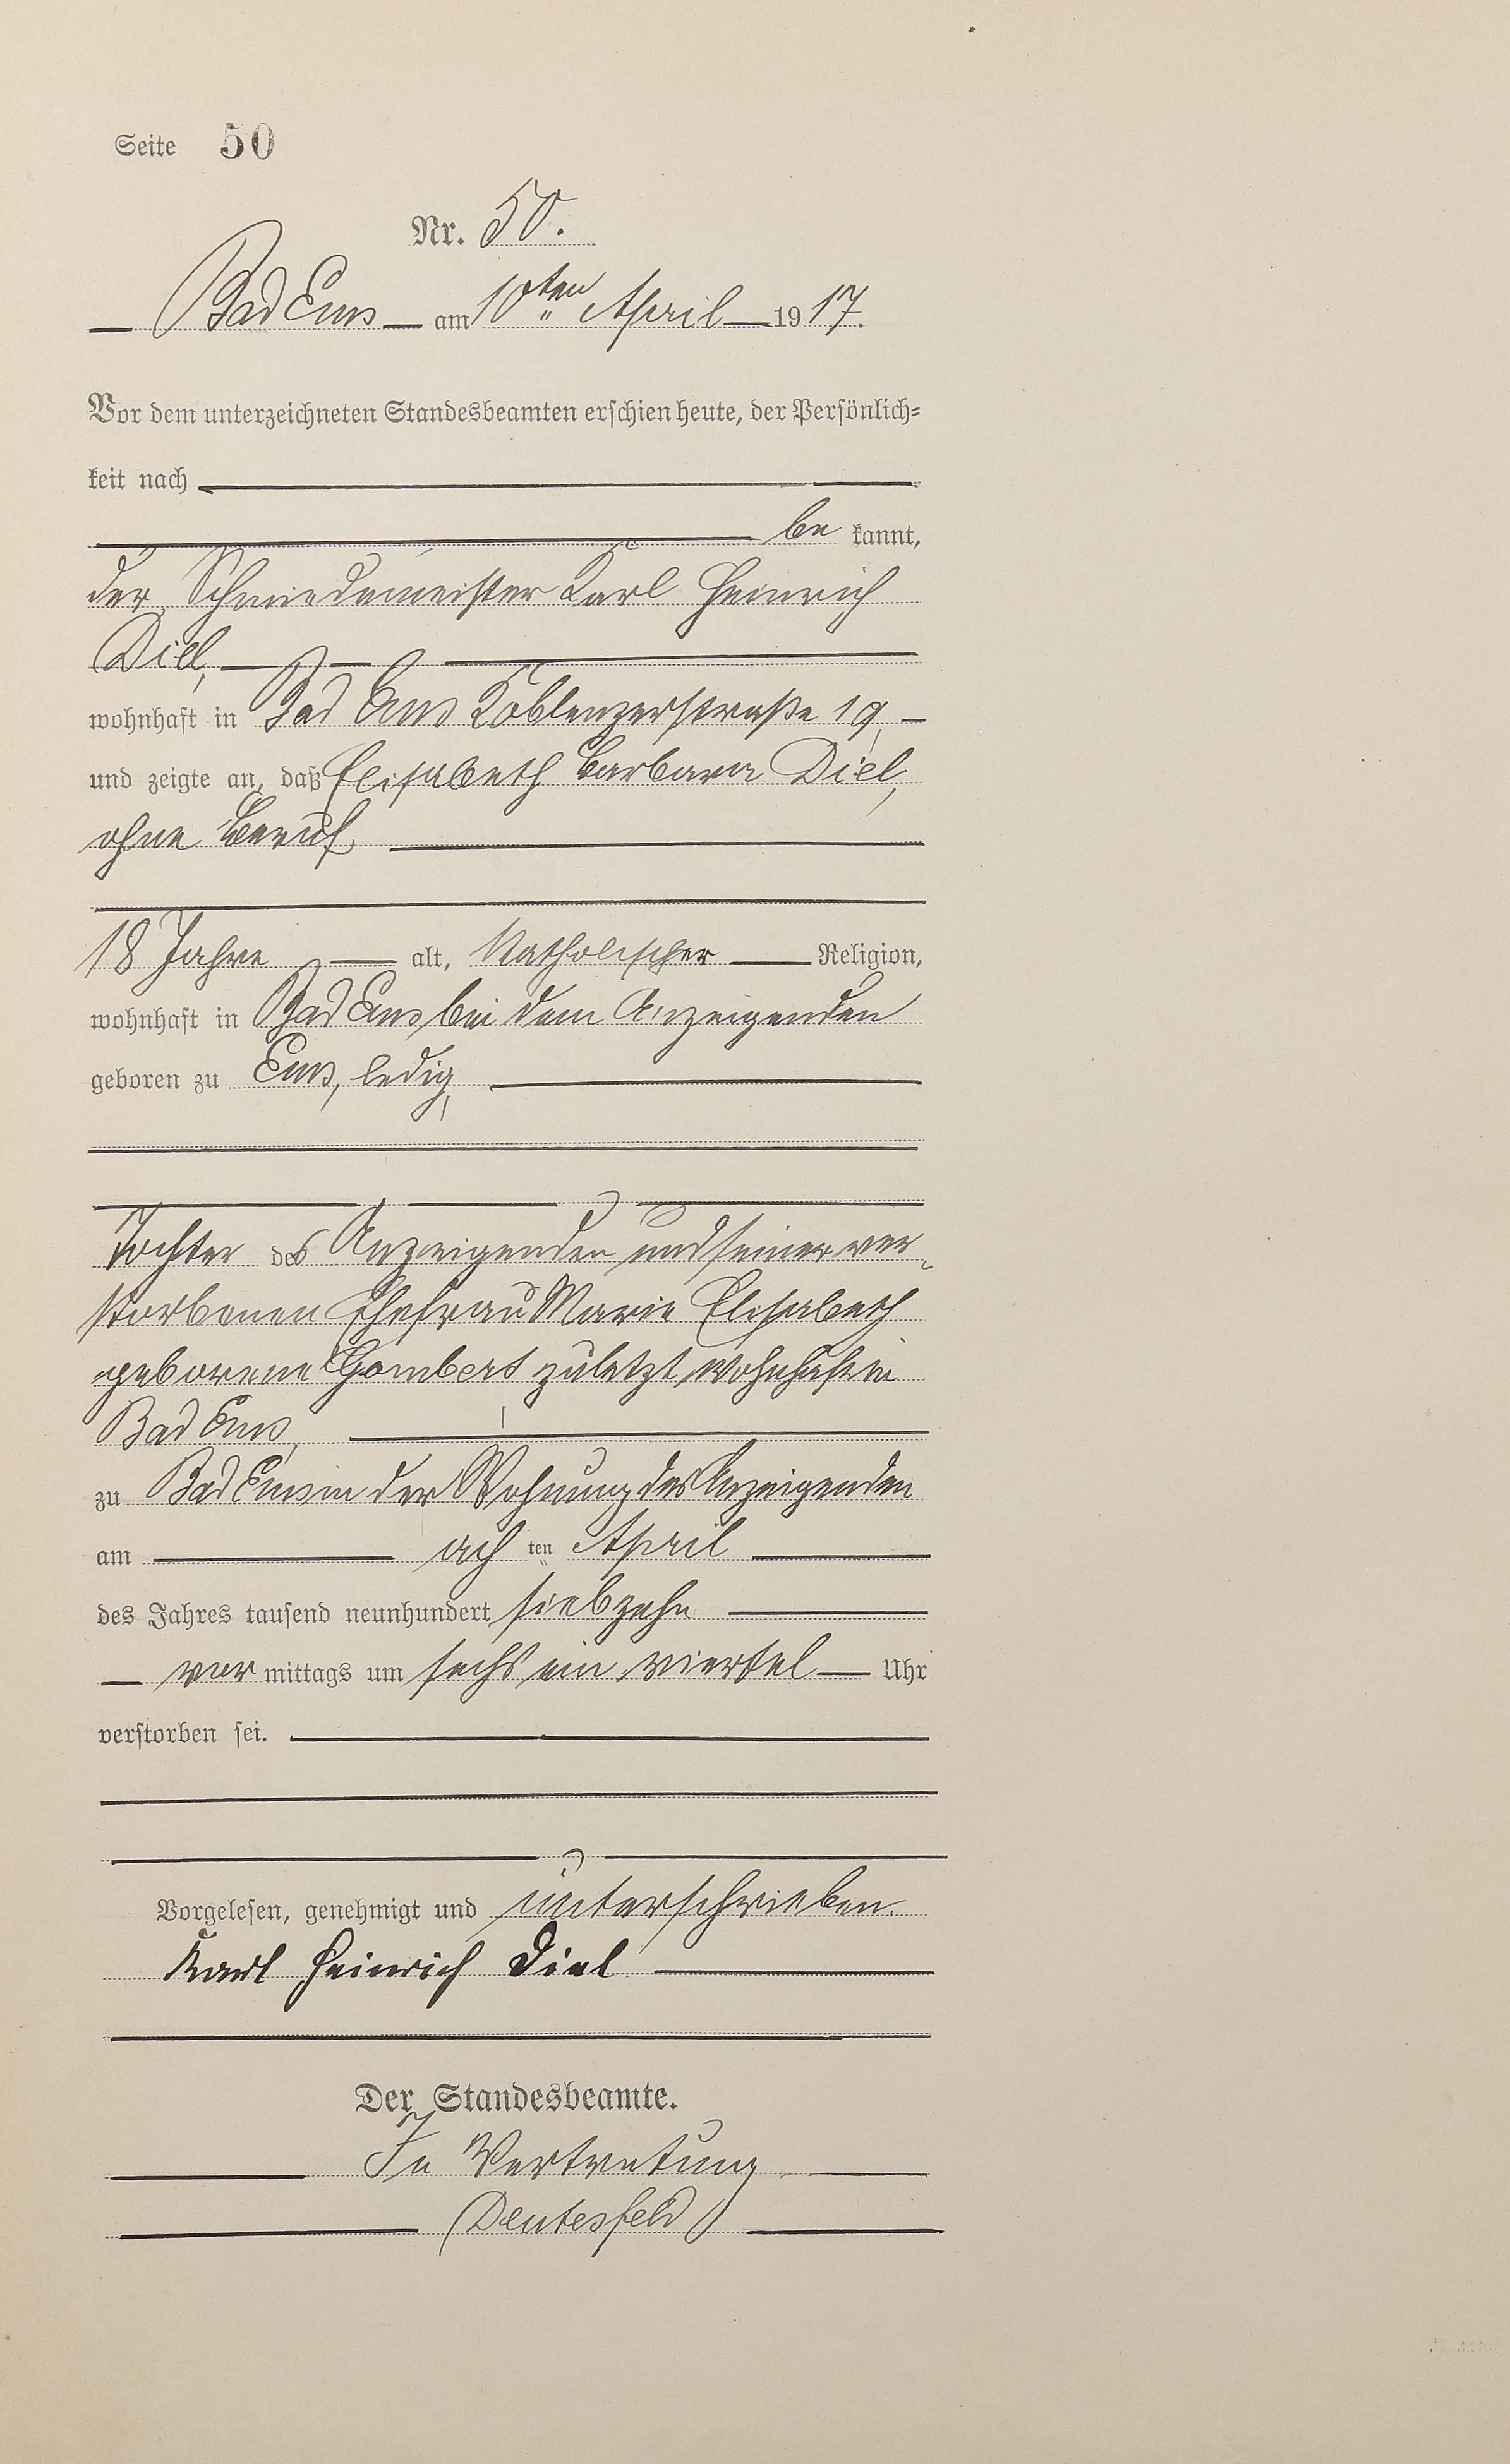 Seite 50
Nr. 50.
Bad Ems am 10ten April 1917.
Vor dem unterzeichneten Standesbeamten erschien heute, der Persönlich-
keit nach
be kannt,
der Schmiedemeister Karl Heinrich
Diel,
wohnhaft in Bad Ems Koblenzerstraße 19,
und zeigte an, daß Elisabeth Barbara Diel,
ohne Beruf,
18 Jahre alt, katholischer Religion,
wohnhaft in Bad Ems, bei dem Anzeigenden
geboren zu Ems, ledig,
Tochter des Anzeigenden und seiner ver-
storbenen Ehefrau Marie Elisabeth
geborene Gombert zuletzt wohnhaft in
Bad Ems,
zu Bad Ems in der Wohnung des Anzeigenden
am ach ten April
des Jahres tausend neunhundert siebzehn
vor mittags um sechs ein viertel Uhr
verstorben sei.
Vorgelesen, genehmigt und unterschrieben.
Karl Heinrich Diel
Der Standesbeamte.
In Vertretung
(Deutesfeld)